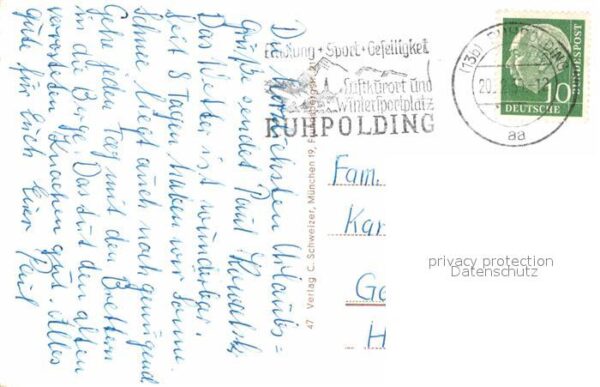 Die herzlichsten Urlaubs=
Grüße sendet Paul
Das Wetter ist wunderbar.
Seit 8 Tagen haben wir Sonne.
Schnee liegt auch noch genügend
Gehe jeden Tag mit den Brettern
in die Berge. Das tut den alten
verrosteten Knochen gut. Alles
gute für Euch Euer Paul
47 Verlag C. Schweizer, München 19,
Erholung + Sport + Geselligkeit
Luftkurort und
Wintersportplatz
RUHPOLDING
(13b) RUHPOLDING
20.
12
aa
10
DEUTSCHE
BUNDESPOST
Fam.
Kar
Ge
H
privacy protection
Datenschutz